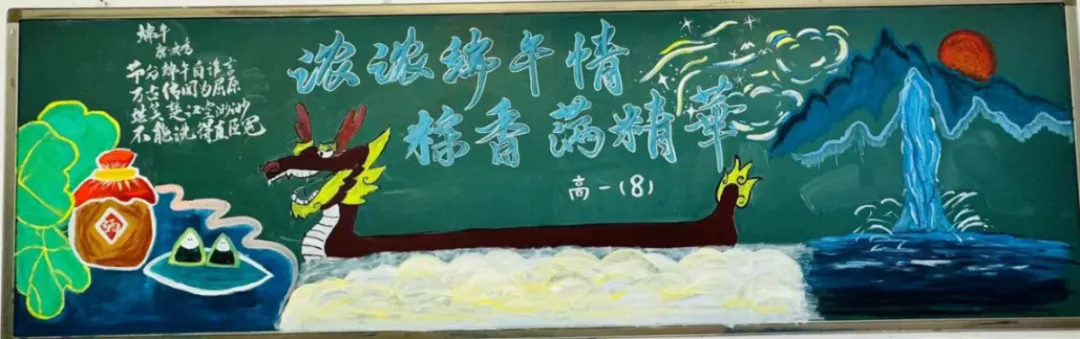 端午
文秀
节分端午自谁言
万古传闻为屈原
堪笑楚江空渺渺
不能洗得直臣冤
浓浓端午情
粽香满精華
高一(8)
酒